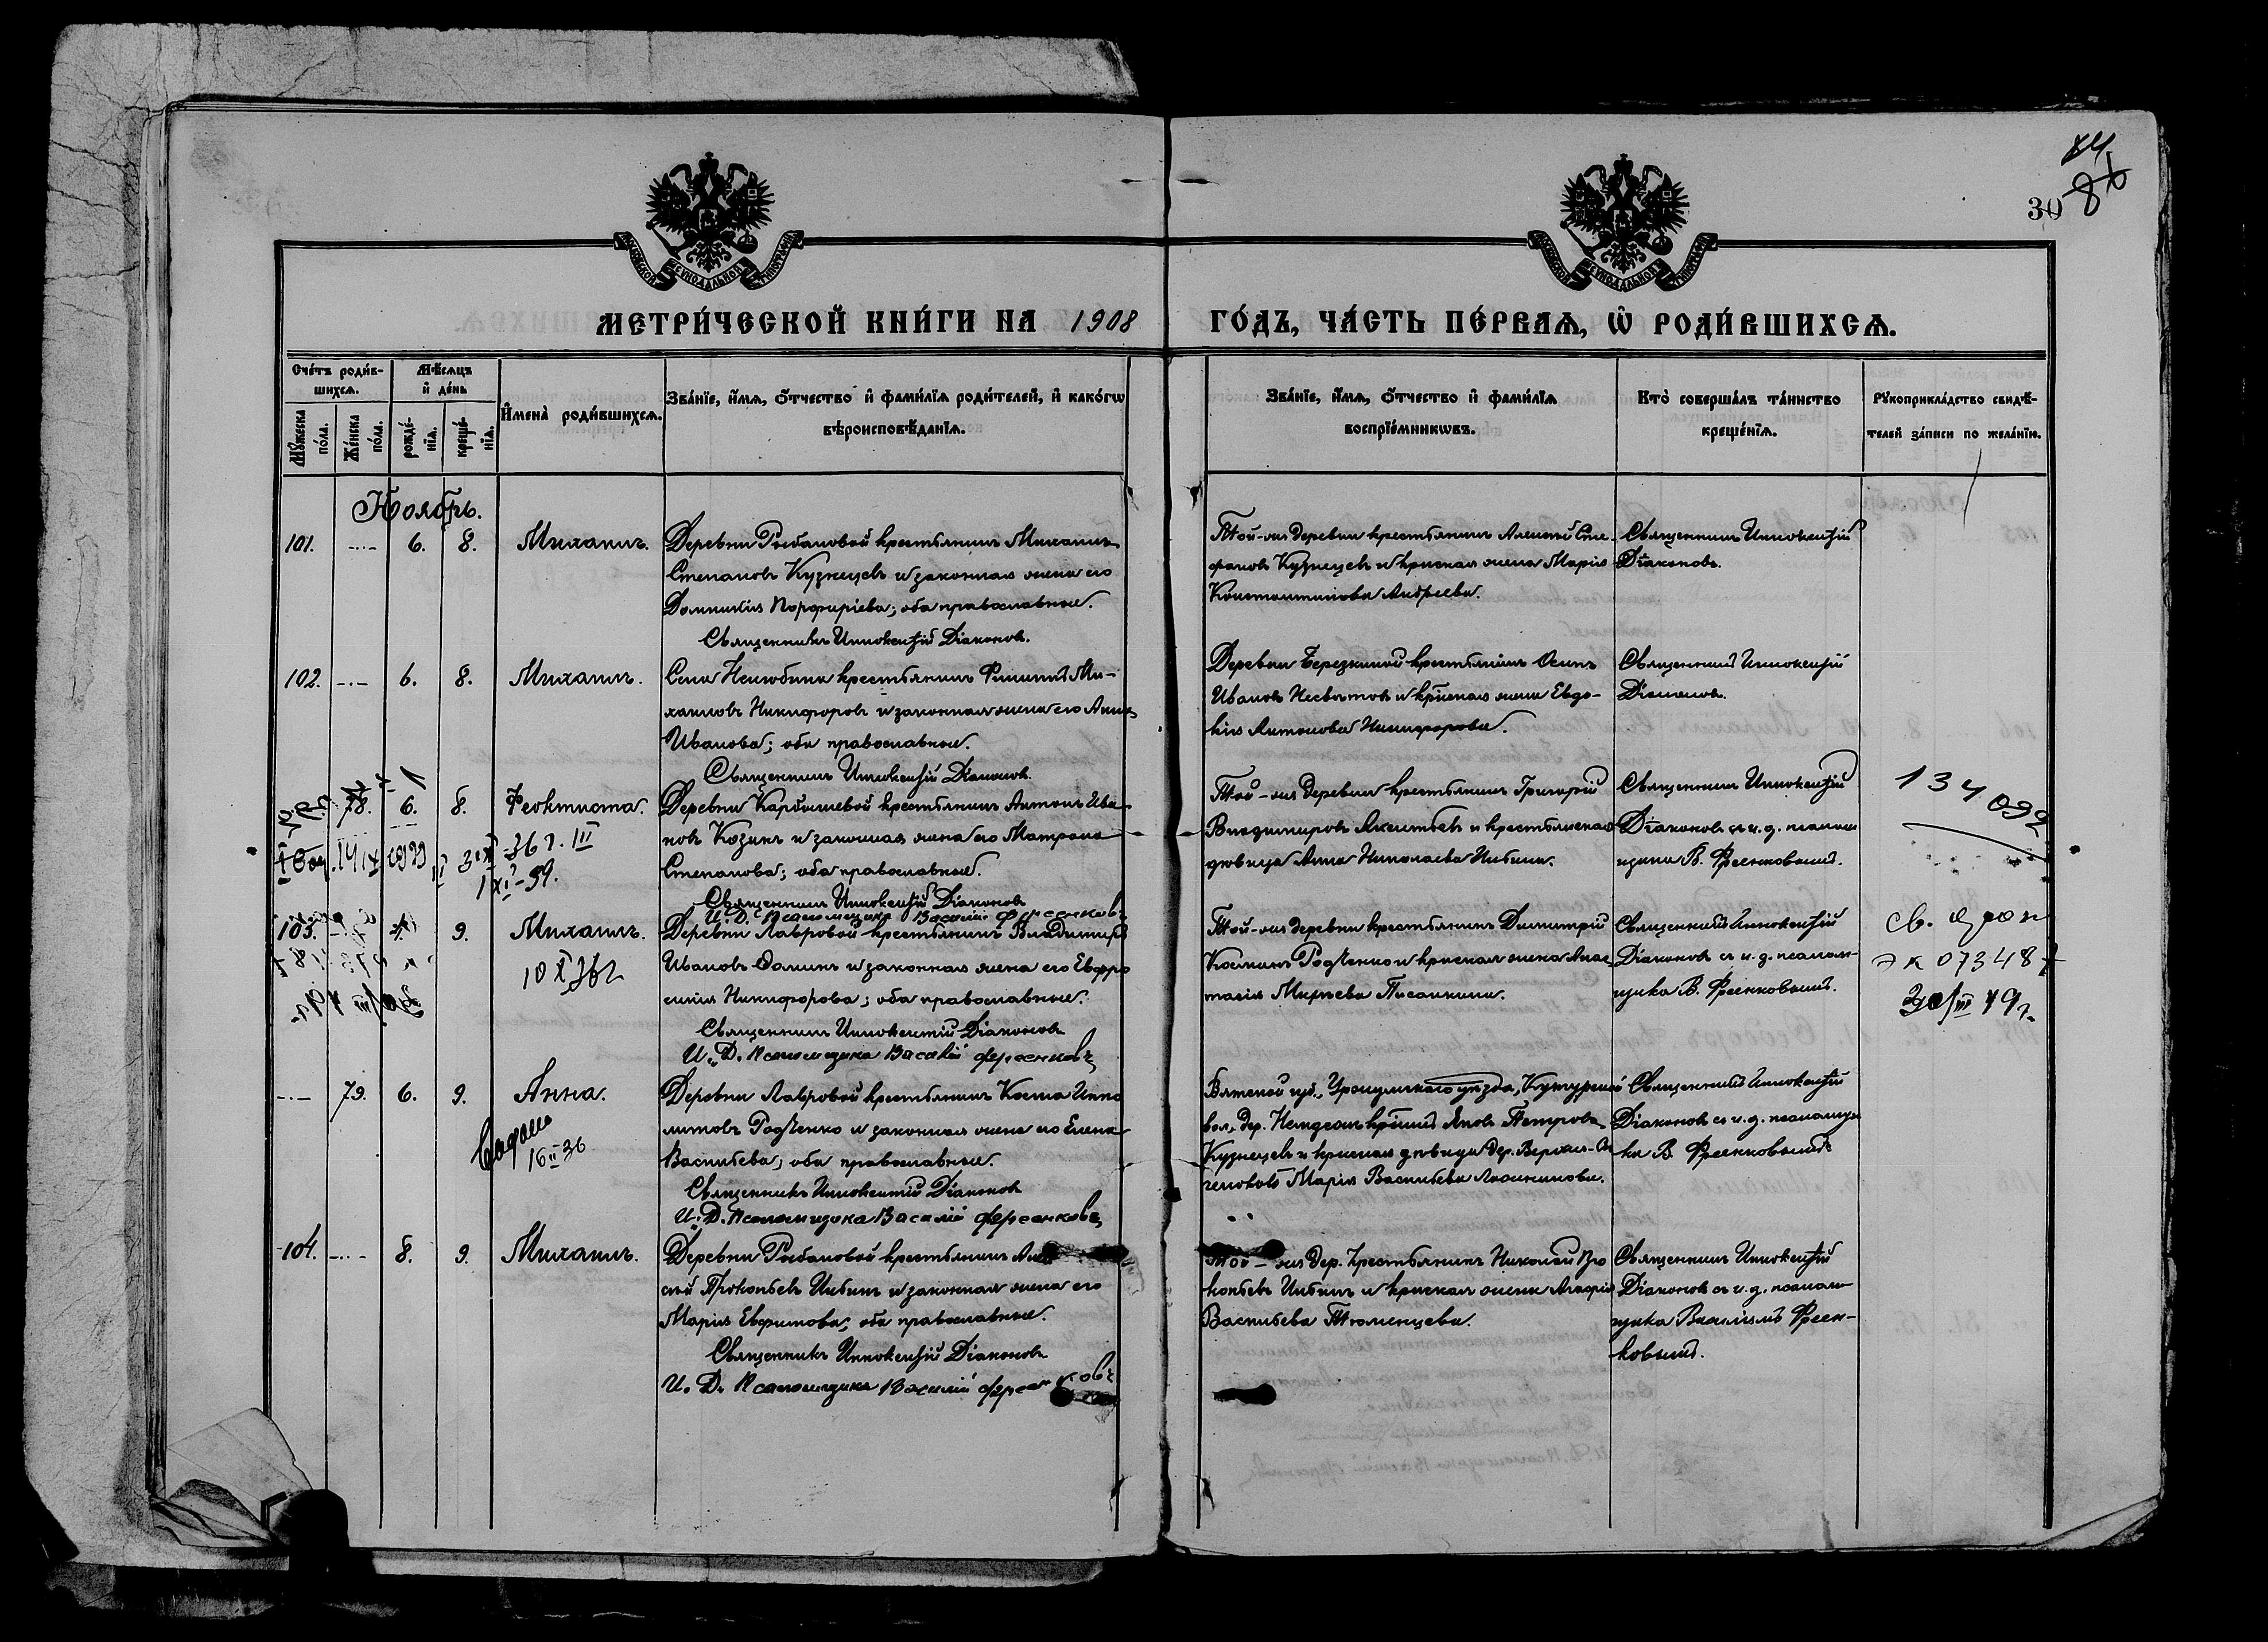 84
86
30
МОСКОВСКОЙ СѴНОДАЛЬНОЙ ТИПОГРАФІИ
МОСКОВСКОЙ СѴНОДАЛЬНОЙ ТИПОГРАФІИ
МЕТРИ́ЧЕСКОЙ КНИ́ГИ НА 1908 ГО́ДЪ, ЧА́СТЬ ПЕ́РВАѦ, Ѡ РОДИ́ВШИХСѦ.
Сче́тъ роди́в-
шихсѧ.
Мꙋ́жеска по́ла.
Же́нска по́ла.
Мѣ́сѧцъ
и де́нь
рожде́-
нїѧ.
креще́-
нїѧ.
Имена̀ роди́вшихсѧ.
Зва́нїе, и́мѧ, о́тчество и фами́лїѧ роди́телей, и како́гѡ
вѣроисповѣ́данїѧ.
Зва́нїе, и́мѧ, о́тчество и фами́лїѧ
воспрїе́мникѡвъ.
Кто̀ соверша́лъ та́инство
креще́нїѧ.
Рꙋкоприкла́дство свидѣ́-
телей за́писи по жела́нїю.
Ноябрь.
101. -.- 6. 8. Михаилъ.
Деревни Рыбаловой крестьянинъ Михаилъ
Степановъ Кузнецовъ и законная жена его
Домникія Порфиріева; оба православные.
Священникъ Иннокентій Діаконовъ.
Той-же деревни крестьянинъ Алексѣй Сте-
фановъ Кузнецовъ и крнская жена Марія
Константинова Андреева.
Священникъ Иннокентій
Діаконовъ.
102. -.- 6. 8. Михаилъ.
Села Нелюбина крестьянинъ Филиппъ Ми-
хаиловъ Никифоровъ и законная жена его Анна
Иванова; оба православные.
Священникъ Иннокентій Діаконовъ.
Деревни Березкиной крестьянинъ Осипъ
Ивановъ Несвѣтовъ и крнская жена Евдо-
кія Антонова Никифорова.
Священникъ Иннокентій
Діаконовъ.
78. 6. 8. Феоктиста.
36 г. III
1 XI - 59.
Деревни Карбышевой крестьянинъ Антонъ Ива
новъ Козинъ и законная жена его Матрона
Степанова; оба православные.
Священникъ Иннокентій Діаконовъ
И. Д. Псаломщика Василій Фреенковъ
Той-же деревни крестьянинъ Григорій
Владимировъ Акентьевъ и крестьянская
дѣвица Анна Николаева Чибина.
Священникъ Иннокентій
Діаконовъ съ и. д. псалом
щика В. Фреенковымъ.
134 092
103. 9. Михаилъ.
10 X 36 г
Деревни Лавровой крестьянинъ Владимиръ
Ивановъ Ѳоминъ и законная жена его Евфро
синія Никифорова; оба православные.
Священникъ Иннокентій Діаконовъ
И. Д. Псаломщика Василій Фреенковъ
Той-же деревни крестьянинъ Димитрій
Косминъ Родченко и крнская жена Анас-
тасія Писанкина.
Священникъ Иннокентій
Діаконовъ съ и. д. псалом-
щика В. Фреенковымъ.
073487
30/III 79 г.
-.- 79. 6. 9. Анна.
16 II 36
Деревни Лавровой крестьянинъ Косма Иппо
литовъ Родченко и законная жена его Елена
Васильева; оба православные.
Священникъ Иннокентій Діаконовъ
И. Д. Псаломщика Василій Фреенковъ
Вятской губ., уѣзда,
вол., дер. Яковъ Петровъ
Кузнецовъ и крнская дѣвица дер. Верхне-Се
ченовой Марія Васильева
Священникъ Иннокентій
Діаконовъ съ и. д. псаломщи
ка В. Фреенковымъ
104. -.- 8. 9. Михаилъ.
Деревни Рыбаловой крестьянинъ
сѣй Прокопьевъ Чибинъ и законная жена его
Марія Евфимова; оба православные.
Священникъ Иннокентій Діаконовъ
И. Д. Псаломщика Василій Фреенковъ
Той-же дер. крестьянинъ Николай Про
копьевъ Чибинъ и крнская жена Агафія
Васильева Тюменцева.
Священникъ Иннокентій
Діаконовъ съ и. д. псалом
щика Василіемъ Фреен-
ковымъ.